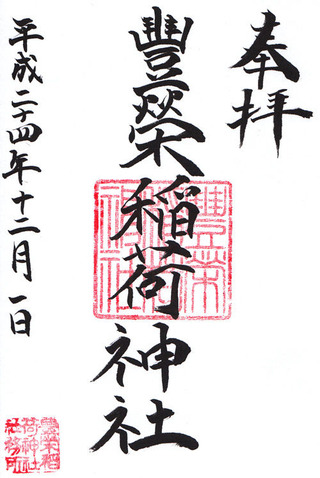 奉拝
豐榮稲荷神社
平成二十四年十二月一日
豊栄稲荷神社
豊栄稲荷神社社務所